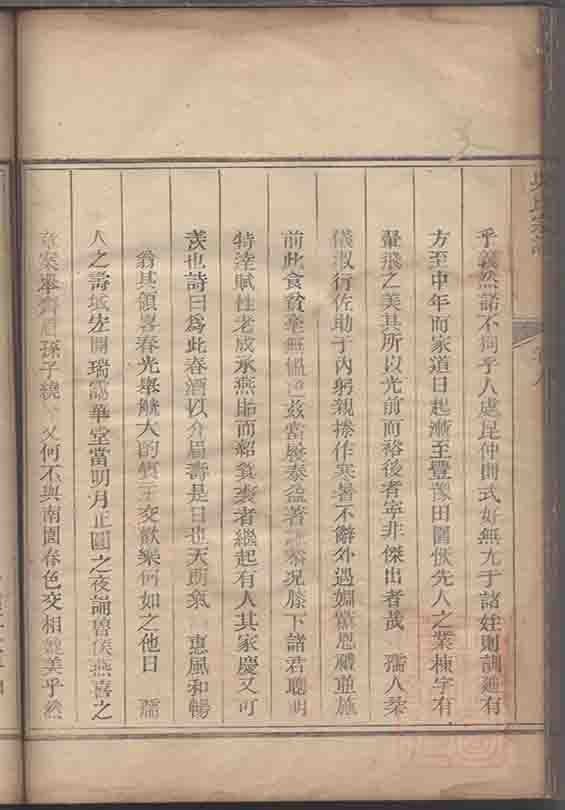 乎義然諾不狥乎人處昆仲間式好無尤于諸姪則訓迪有
方至中年而家道日起漸至豐豫田園恢先人之業棟宇有
翬飛之美其所以光前而裕後者寧非傑出者哉 孺人柔
儀淑行佐助于內躬親操作寒暑不辭外遇婣黨恩禮並施
前此食貧毫無慍色茲當履泰益著 况膝下諸君聰明
特達賦性老成承燕貽而紹箕裘者繼起有人其家慶又可
羨也詩曰為此春酒以介眉壽是日也天朗氣 惠風和暢
翁其領畧春光舉觥大酌賓主交歡樂何如之他日 孺
人之壽域宏開瑞靄華堂當明月正圓之夜 燕喜之
章案舉齊眉孫子繞 又何不與南園春色交相媲美乎然